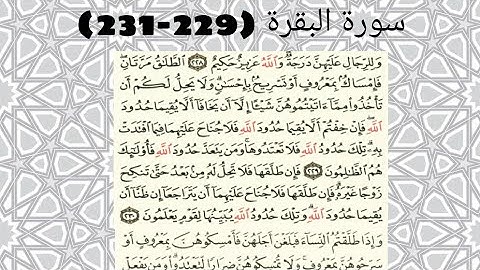 سورة البقرة (229-231)
وَلِلرِّجَالِ عَلَيْهِنَّ دَرَجَةٌ وَاللَّهُ عَزِيزٌ حَكِيمٌ ٢٢٨ الطَّلَاقُ مَرَّتَانِ
فَإِمْسَاكٌ بِمَعْرُوفٍ أَوْ تَسْرِيحٌ بِإِحْسَانٍ وَلَا يَحِلُّ لَكُمْ أَن
تَأْخُذُوا مِمَّا آتَيْتُمُوهُنَّ شَيْئًا إِلَّا أَن يَخَافَا أَلَّا يُقِيمَا حُدُودَ
اللَّهِ فَإِنْ خِفْتُمْ أَلَّا يُقِيمَا حُدُودَ اللَّهِ فَلَا جُنَاحَ عَلَيْهِمَا فِيمَا افْتَدَتْ
بِهِ تِلْكَ حُدُودُ اللَّهِ فَلَا تَعْتَدُوهَا وَمَن يَتَعَدَّ حُدُودَ اللَّهِ فَأُولَٰئِكَ
هُمُ الظَّالِمُونَ ٢٢٩ فَإِن طَلَّقَهَا فَلَا تَحِلُّ لَهُ مِن بَعْدُ حَتَّىٰ تَنكِحَ
زَوْجًا غَيْرَهُ فَإِن طَلَّقَهَا فَلَا جُنَاحَ عَلَيْهِمَا أَن يَتَرَاجَعَا إِن ظَنَّا أَن
يُقِيمَا حُدُودَ اللَّهِ وَتِلْكَ حُدُودُ اللَّهِ يُبَيِّنُهَا لِقَوْمٍ يَعْلَمُونَ ٢٣٠
وَإِذَا طَلَّقْتُمُ النِّسَاءَ فَبَلَغْنَ أَجَلَهُنَّ فَأَمْسِكُوهُنَّ بِمَعْرُوفٍ أَوْ
سَرِّحُوهُنَّ بِمَعْرُوفٍ وَلَا تُمْسِكُوهُنَّ ضِرَارًا لِّتَعْتَدُوا وَمَن يَفْعَلْ